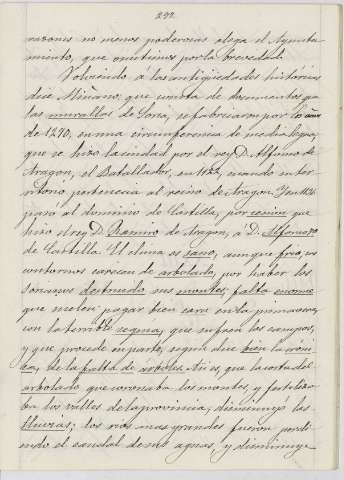 292.
razones no menos poderosas alega el Ayunta-
miento, que omitimos por la brevedad.
Volviendo á las antigüedades históricas
dice Miñano, que consta de documentos que
las murallas de Soria, se fabricaron por los años
de 1290, en una circunferencia de media legua,
que se hizo la ciudad por el rey D. Alfonso de
Aragon, el Batallador, en 1122, cuando su ter-
ritorio pertenecia al reino de Aragon. Y en 1136
pasó al dominio de Castilla, por cesion que
hizo el rey D. Ramiro de Aragon, á D. Alfonso 7º
de Castilla. El clima es sano, aunque frio, sus
contornos carecian de arbolado, por haber los
sorianos destruido sus montes; falta enorme
que suelen pagar bien cara en la primavera,
con la terrible sequia, que sufren los campos,
y que procede en parte, segun dice bien la cróni-
ca, de la falta de arboles. Asi es, que la corta del
arbolado que coronaba los montes, y fertiliza-
ba los valles de la provincia, disminuyó las
lluvias; los rios mas grandes fueron perdi-
endo el caudal de sus aguas, y disminuye-